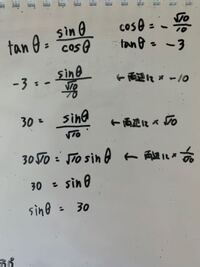 cosθ = -√10/10
tanθ = sinθ/cosθ
tanθ = -3
-3 = - sinθ/(√10/10) ← 両辺に × -10
30 = sinθ/√10 ← 両辺に × √10
30√10 = √10 sinθ ← 両辺に × 1/√10
30 = sinθ
sinθ = 30